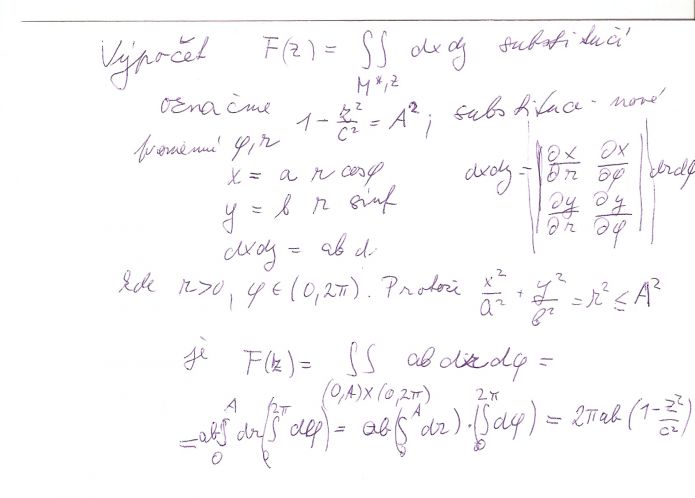 Výpočet F(z) = ∫∫_{M*,z} dxdy substitucí
označme 1 - z²/c² = A²; substituce - nové
proměnné φ, r
x = a r cosφ dxdy = | ∂x/∂r ∂x/∂φ | drdφ
y = b r sinφ | ∂y/∂r ∂y/∂φ |
dxdy = ab d.
kde r>0, φ ∈ (0,2π). Protože x²/a² + y²/b² = r² ≤ A²
je F(z) = ∫∫_{(0,A)×(0,2π)} ab dr dφ =
= ab ∫_0^A dr (∫_0^{2π} dφ) = ab (∫_0^A dr) · (∫_0^{2π} dφ) = 2πab (1 - z²/c²)